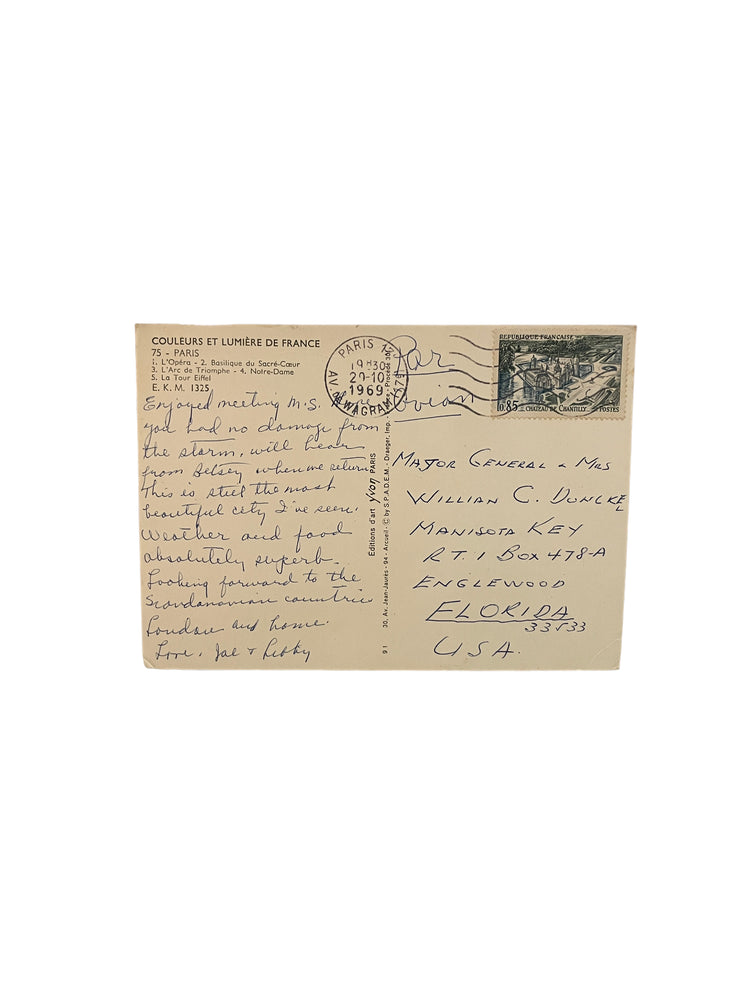 COULEURS ET LUMIÈRE DE FRANCE
75 - PARIS
1. L'Opéra - 2. Basilique du Sacré-Cœur
3. L'Arc de Triomphe - 4. Notre-Dame
5. La Tour Eiffel
E. K. M. 1325
Enjoyed meeting M.S.
you had no damage from
the storm, will hear
from Betsey when we return
This is still the most
beautiful city I've seen.
Weather and food
absolutely superb.
Looking forward to the
Scandanavian countrie
London and home.
Love, Jae + Libby
Editions d'art yvon PARIS
91 30, Av. Jean-Jaurès - 94 - Arcueil - © by S.P.A.D.E.M. - Draeger, Imp.
PARIS 17
19H30
20-10
1969
AV. DE WAGRAM (17E)
Par
avion
REPUBLIQUE FRANÇAISE
0,85 CHATEAU DE CHANTILLY POSTES
MAJOR GENERAL & MRS
WILLIAN C. DUNCKEL
MANISOTA KEY
RT. 1 BOX 478-A
ENGLEWOOD
FLORIDA
33533
USA.